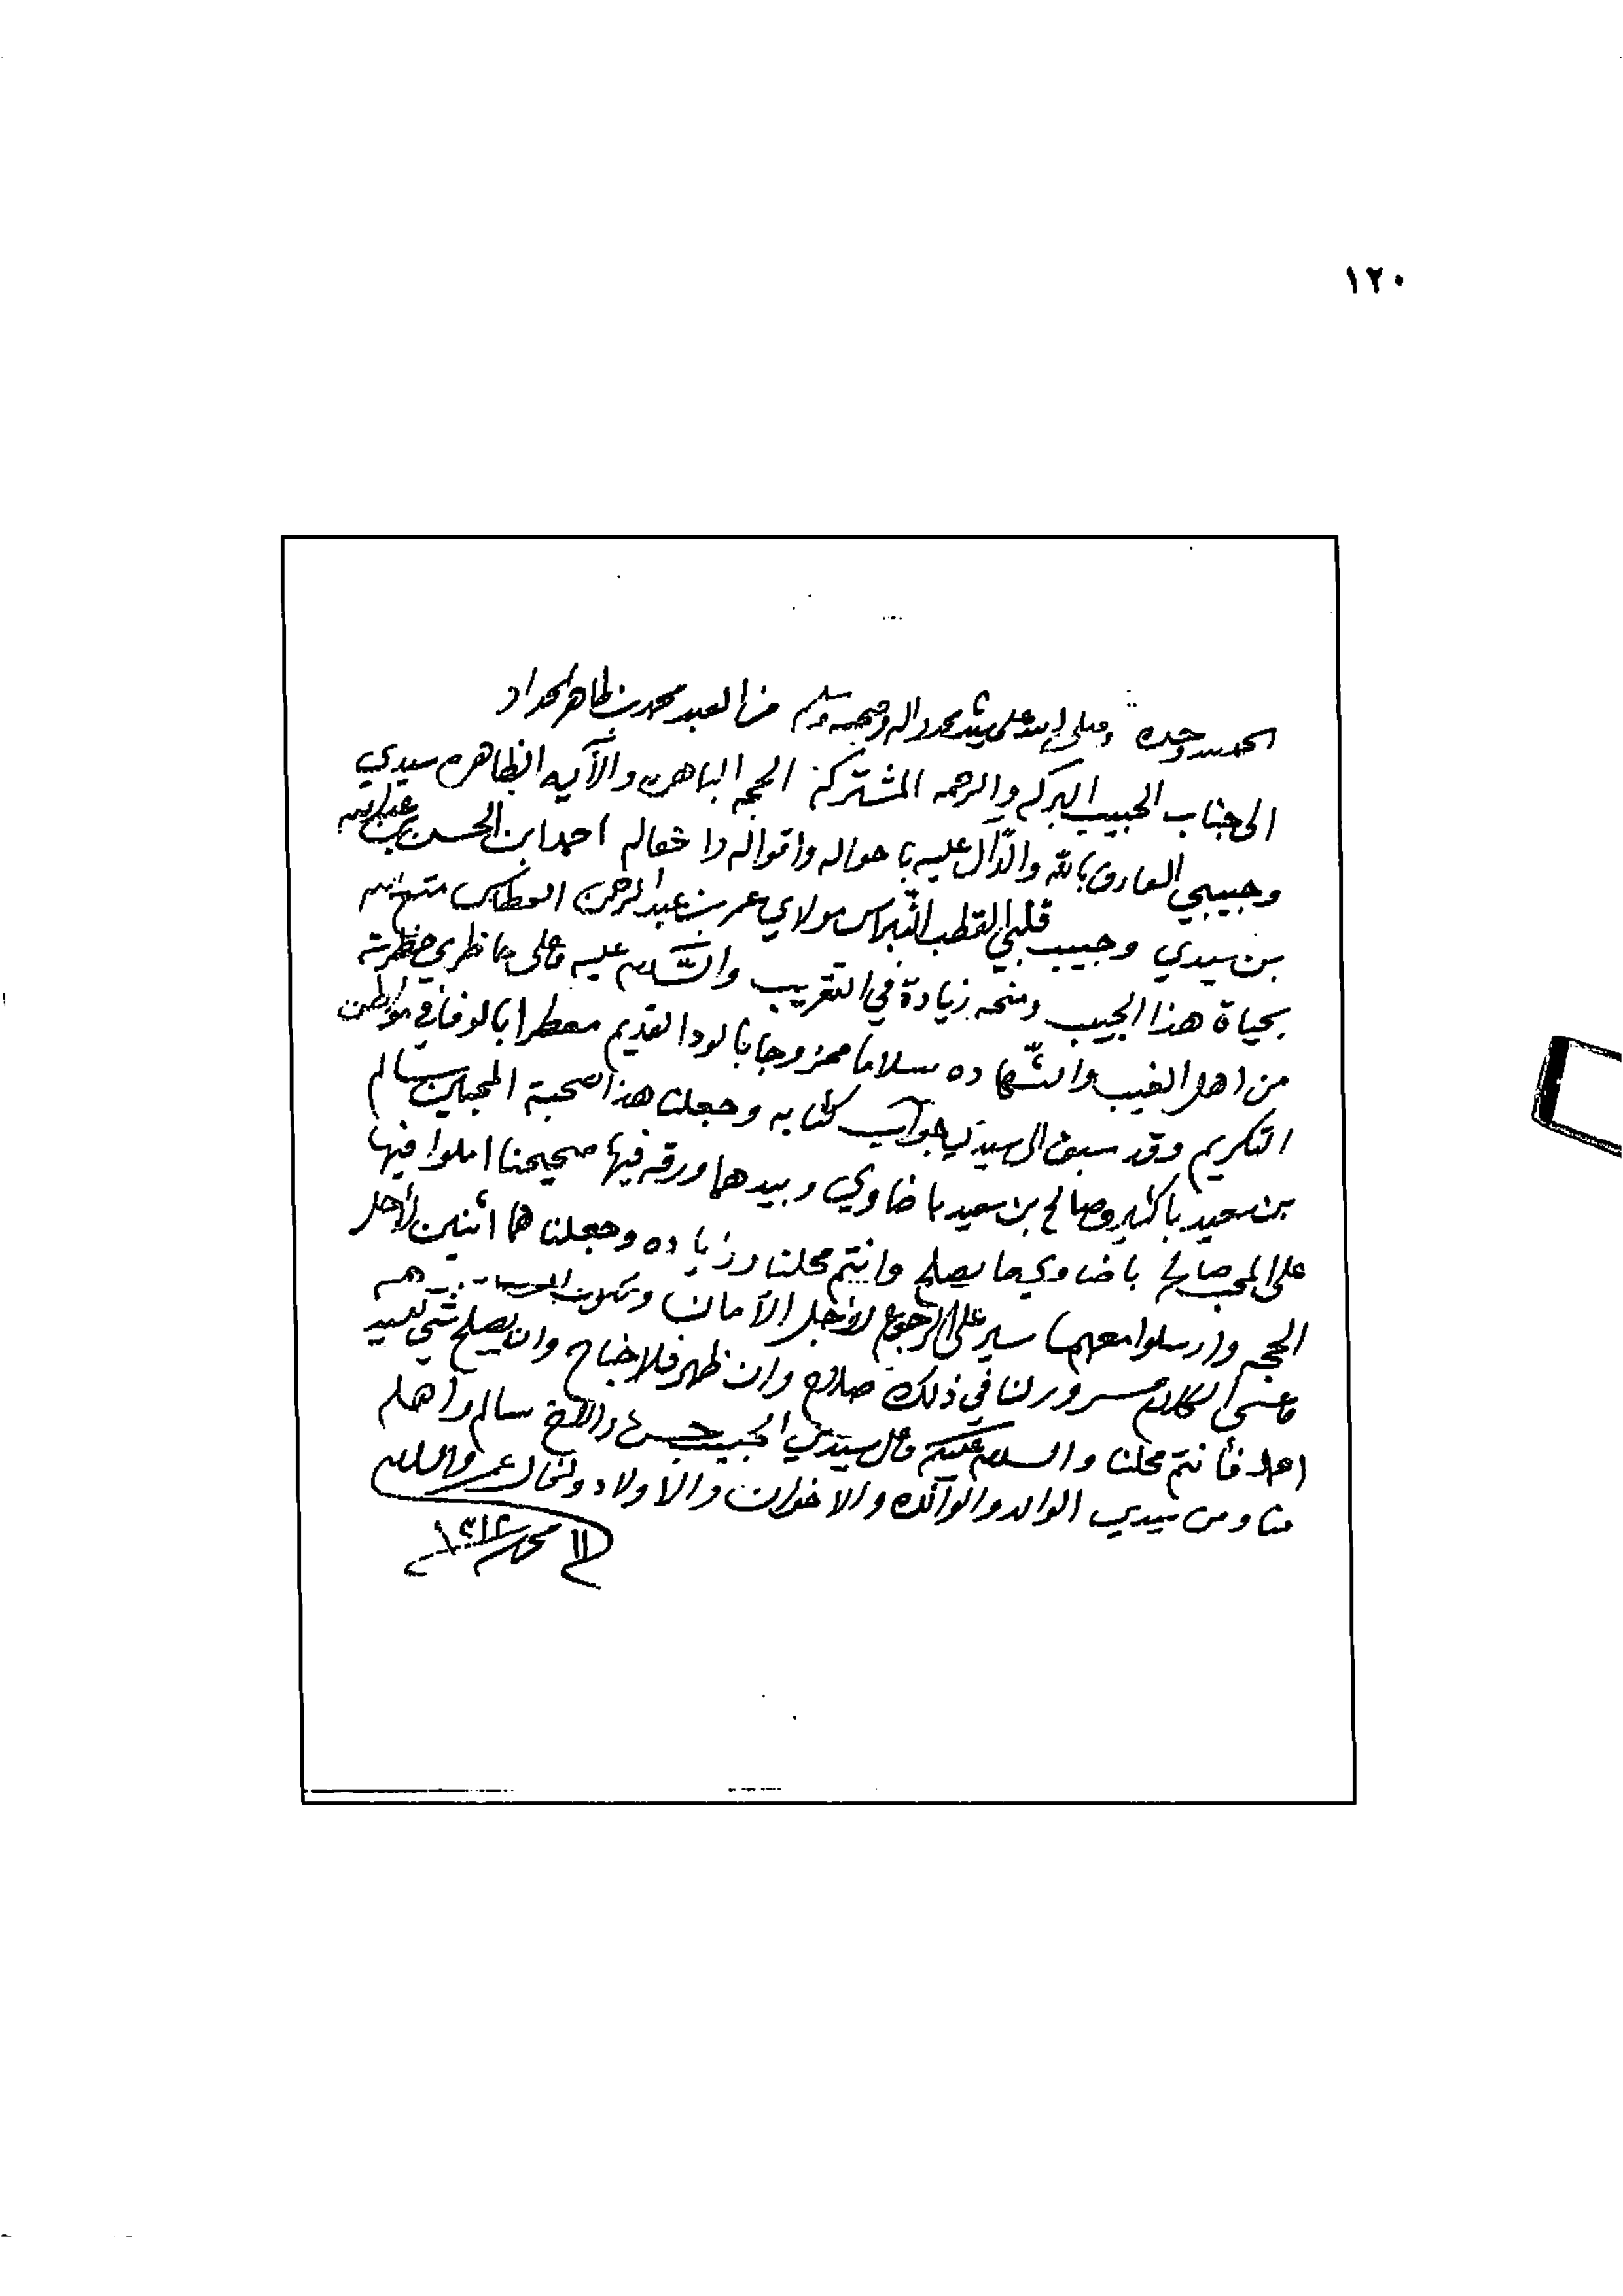 ١٢٠
الحمد لله وحده وصلى الله على سيدنا محمد واله وصحبه وسلم من العبد محمد بن طاهر الحداد
الى جناب الحبيب البركه والرحمه المشتركة الحجه الباهره والآيه الظاهره سيدي
وحبيبي العارف بالله والدّال عليه باحواله واقواله وافعاله احمد ابن الحسن بن عبدالله
بن سيدي وحبيب قلبي القطب النبراس مولاي عمر بن عبد الرحمن العطاس متع الله
بحياة هذا الحبيب ومنحه زيادة في التقريب والسّلام عليه وعلى حاظري حظرته
من اهل الغيب والشّهاده سلاما ممزوجا بالود القديم معطرا بالوفا في مواطن
التكريم وقد سبق الى سيدي جواب كتابه وجعلت هذا صحبة المحبين سالم
بن سعيد باكثير وصالح بن سعيد باضاوي وبيدهما ورقه فيها صحيحنا املوا فيها
على المحب صالح باضاوي ما يصلح وانتم محلنا وزياده وجعلنا هما اثنين لأجل
الحجه وارسلوا معهم سير على الرجوع لأجل الأمان وتكون
وعسى الكلام مسرور لنا في ذلك صلاح وان ظهر فلا جناح وان يصلح شي للسيد
احمد فأنتم محلنا والسلام عليكم وعلى سيدي الحبيب حسن والأخ سالم وأهله
منا ومن سيدي الوالد والوالده والاخوان والاولاد والخال عمر والسلام
١١ محرم ١٣١٢